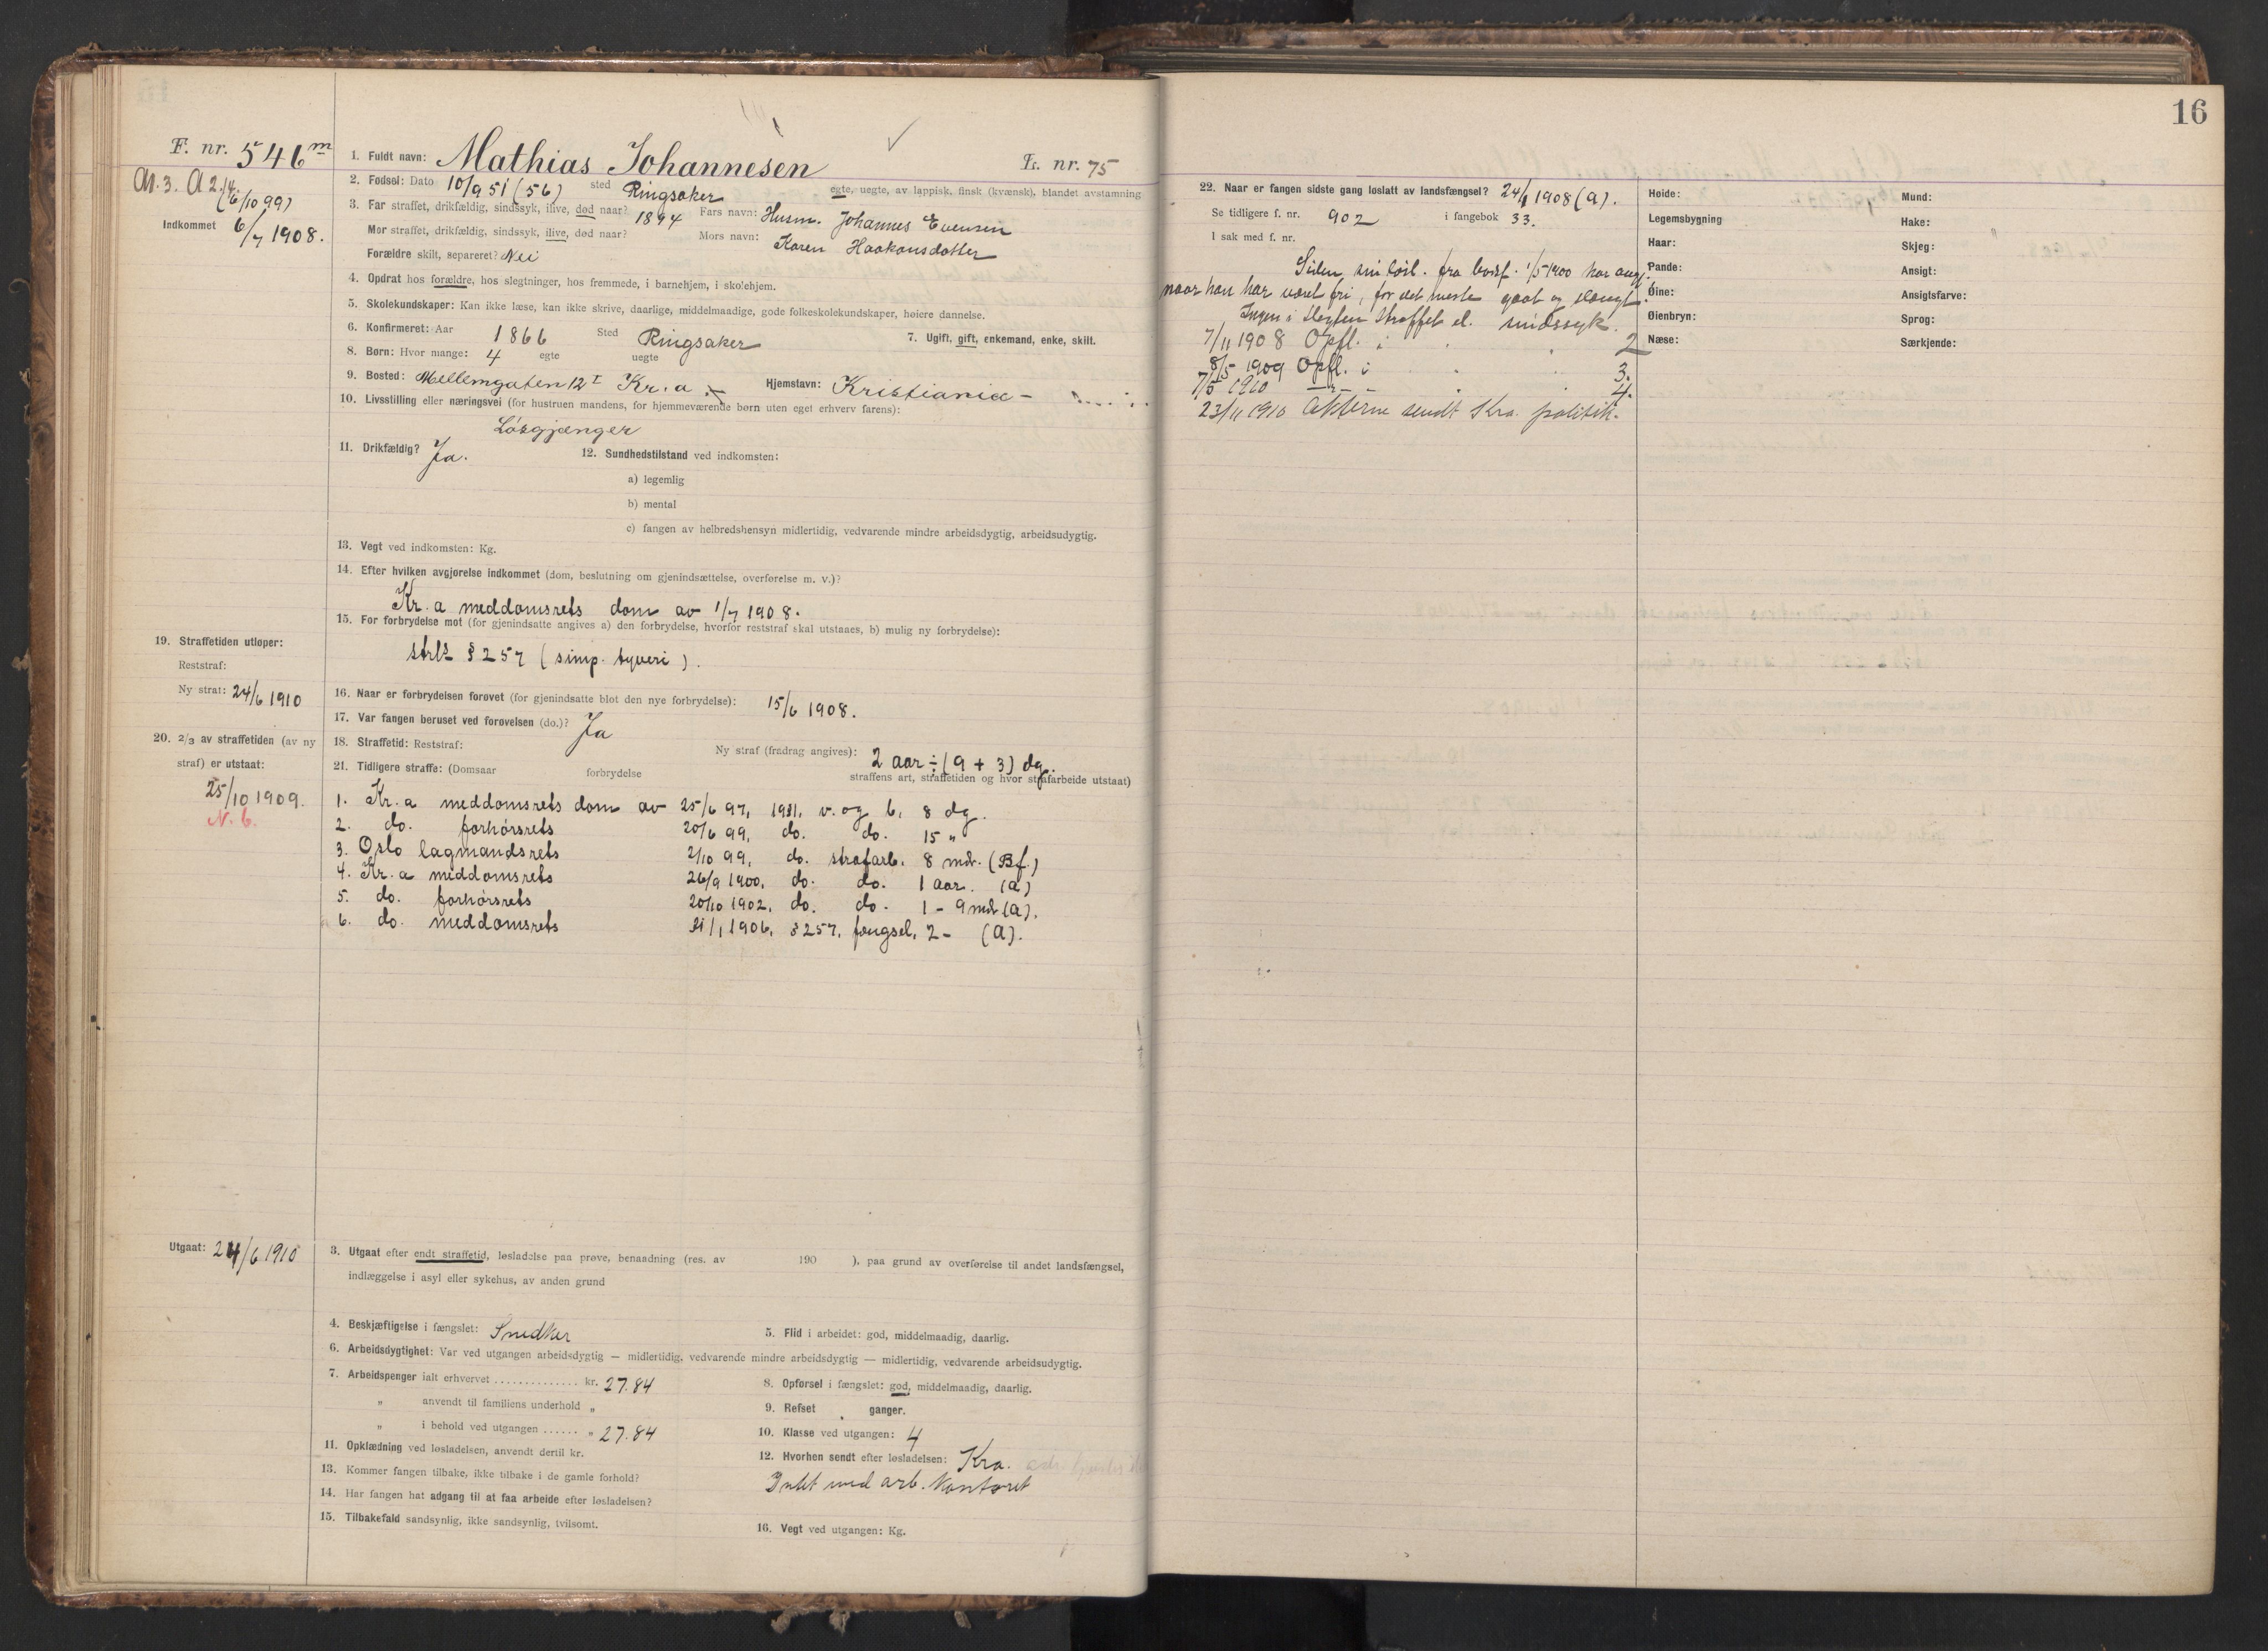 16
F. nr. 546 m
A1. 3. A 2./4.
(6/10 99)
Indkommet 6/7 1908.
1. Fuldt navn: Mathias Johannesen
L. nr. 75
2. Fødsel: Dato 10/9 51 (56) sted Ringsaker egte, uegte, av lappisk, finsk (kvænsk), blandet avstamning
3. Far straffet, drikfældig, sindssyk, ilive, død naar? 1894 Fars navn: Husm. Johannes Evensen
Mor straffet, drikfældig, sindssyk, ilive, død naar? Mors navn: Karen Haakonsdotter
Forældre skilt, separeret? Nei
4. Opdrat hos forældre, hos slegtninger, hos fremmede, i barnehjem, i skolehjem.
5. Skolekundskaper: Kan ikke læse, kan ikke skrive, daarlige, middelmaadige, gode folkeskolekundskaper, høiere dannelse.
6. Konfirmeret: Aar 1866 Sted Ringsaker 7. Ugift, gift, enkemand, enke, skilt.
8. Børn: Hvor mange: 4 egte uegte
9. Bosted: Mellemgaten 12 I Kr.a. Hjemstavn: Kristiania -
10. Livsstilling eller næringsvei (for hustruen mandens, for hjemmeværende børn uten eget erhverv farens):
Løsgjænger
11. Drikfældig? Ja. 12. Sundhedstilstand ved indkomsten:
a) legemlig
b) mental
c) fangen av helbredshensyn midlertidig, vedvarende mindre arbeidsdygtig, arbeidsudygtig.
13. Vegt ved indkomsten: Kg.
14. Efter hvilken avgjørelse indkommet (dom, beslutning om gjenindsættelse, overførelse m. v.)?
Kr.a meddomsrets dom av 1/7 1908.
15. For forbrydelse mot (for gjenindsatte angives a) den forbrydelse, hvorfor reststraf skal utstaaes, b) mulig ny forbrydelse):
strls § 257 (simp. tyveri).
19. Straffetiden utløper:
Reststraf:
Ny straf: 24/6 1910
16. Naar er forbrydelsen forøvet (for gjenindsatte blot den nye forbrydelse): 15/6 1908.
17. Var fangen beruset ved forøvelsen (do.)? Ja
20. 2/3 av straffetiden (av ny straf) er utstaat:
25/10 1909.
N. 6.
18. Straffetid: Reststraf: Ny straf (fradrag angives): 2 aar ÷ (9 + 3) dg.
21. Tidligere straffe: (Domsaar forbrydelse straffens art, straffetiden og hvor strafarbeide utstaat)
1. Kr.a meddomsrets dom av 25/6 97, 1931, v. og b. 8 dg.
2. do. forhørsrets 20/6 99, do. do. 15 "
3. Oslo lagmandsrets 2/10 99, do. strafarb. 8 mdr. (Bf.)
4. Kr.a meddomsrets 26/9 1900, do. do. 1 aar. (A)
5. do. forhørsrets 20/10 1902, do. do. 1 - 9 mdr (A).
6. do. meddomsrets 31/1 1906, § 257, fængsel, 2 - (A).
Utgaat: 24/6 1910
3. Utgaat efter endt straffetid, løsladelse paa prøve, benaadning (res. av 190 ), paa grund av overførelse til andet landsfængsel,
indlæggelse i asyl eller sykehus, av anden grund
4. Beskjæftigelse i fængslet: Snedker 5. Flid i arbeidet: god, middelmaadig, daarlig.
6. Arbeidsdygtighet: Var ved utgangen arbeidsdygtig — midlertidig, vedvarende mindre arbeidsdygtig — midlertidig, vedvarende arbeidsudygtig.
7. Arbeidspenger ialt erhvervet .............. kr. 27.84 8. Opførsel i fængslet: god, middelmaadig, daarlig.
" anvendt til familiens underhold " 9. Refset ganger.
" i behold ved utgangen ...... " 27.84 10. Klasse ved utgangen: 4
11. Opklædning ved løsladelsen, anvendt dertil kr. 12. Hvorhen sendt efter løsladelsen: Kra.
13. Kommer fangen tilbake, ikke tilbake i de gamle forhold? Intet med arb. kontoret
14. Har fangen hat adgang til at faa arbeide efter løsladelsen?
15. Tilbakefald sandsynlig, ikke sandsynlig, tvilsomt. 16. Vegt ved utgangen: Kg.
22. Naar er fangen sidste gang løslatt av landsfængsel? 24/1 1908 (A).
Se tidligere f. nr. 902 i fangebok 33.
I sak med f. nr.
Siden sin løsl. fra bodsf. 1/5 1900 har angj.
naar han har været fri, for det meste gaat og slængt.
Ingen i slegten straffet el. sindssyk.
7/11 1908 Opfl. i 2
8/5 1909 Opfl. i 3.
7/5 1910 - " - 4.
23/11 1910 Akterne sendt Kra. politik.
Høide:
Legemsbygning
Haar:
Pande:
Øine:
Øienbryn:
Næse:
Mund:
Hake:
Skjeg:
Ansigt:
Ansigtsfarve:
Sprog:
Særkjende: